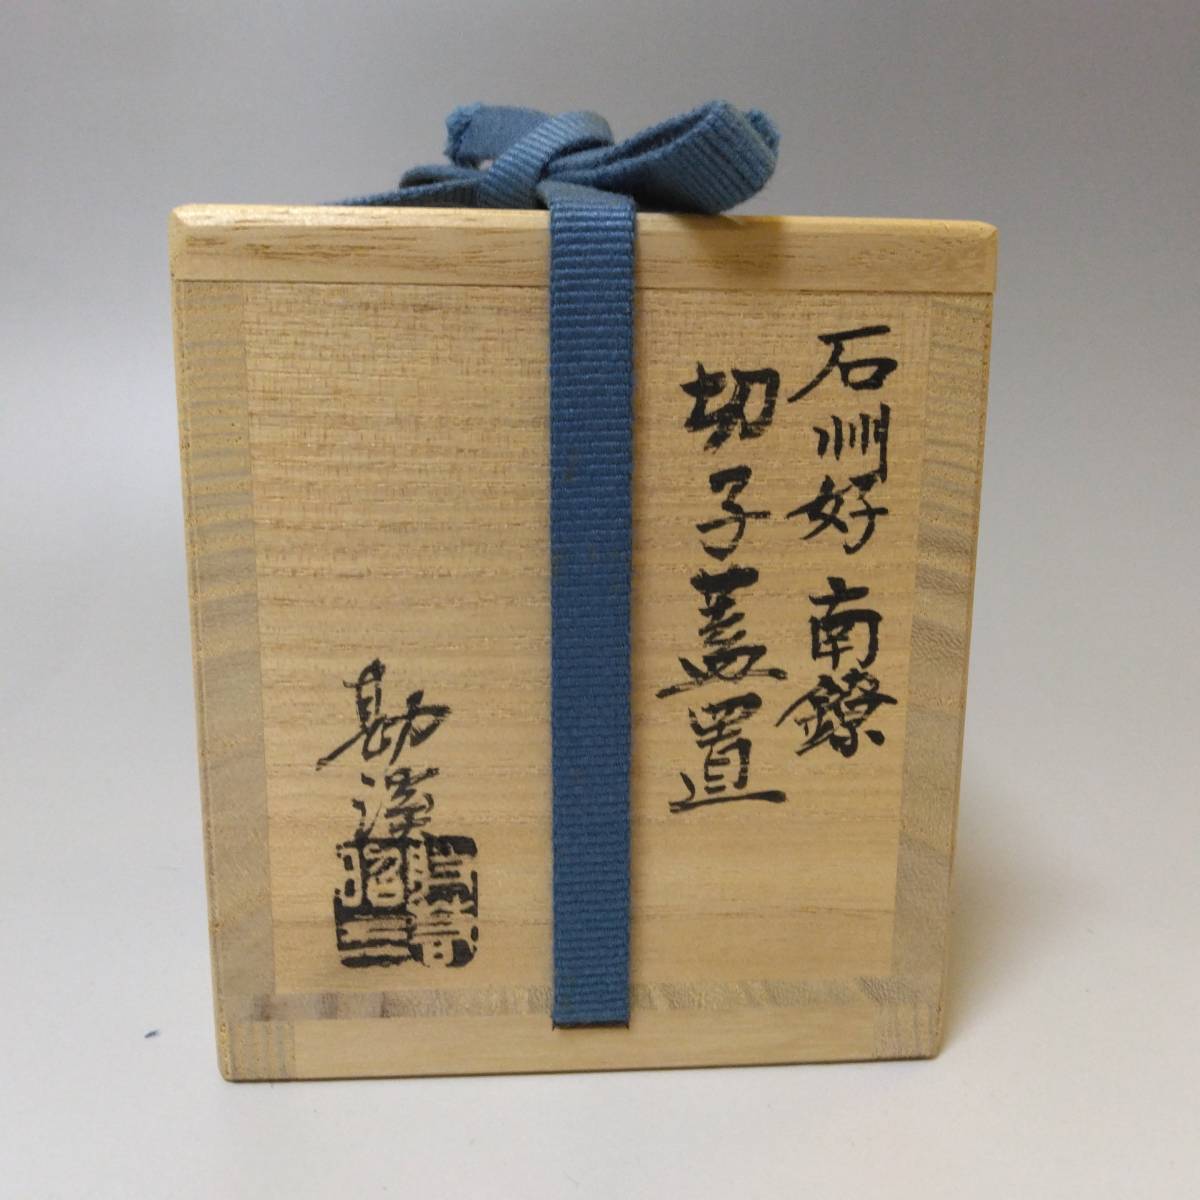 石州好 南鐐
切子蓋置
勘渓